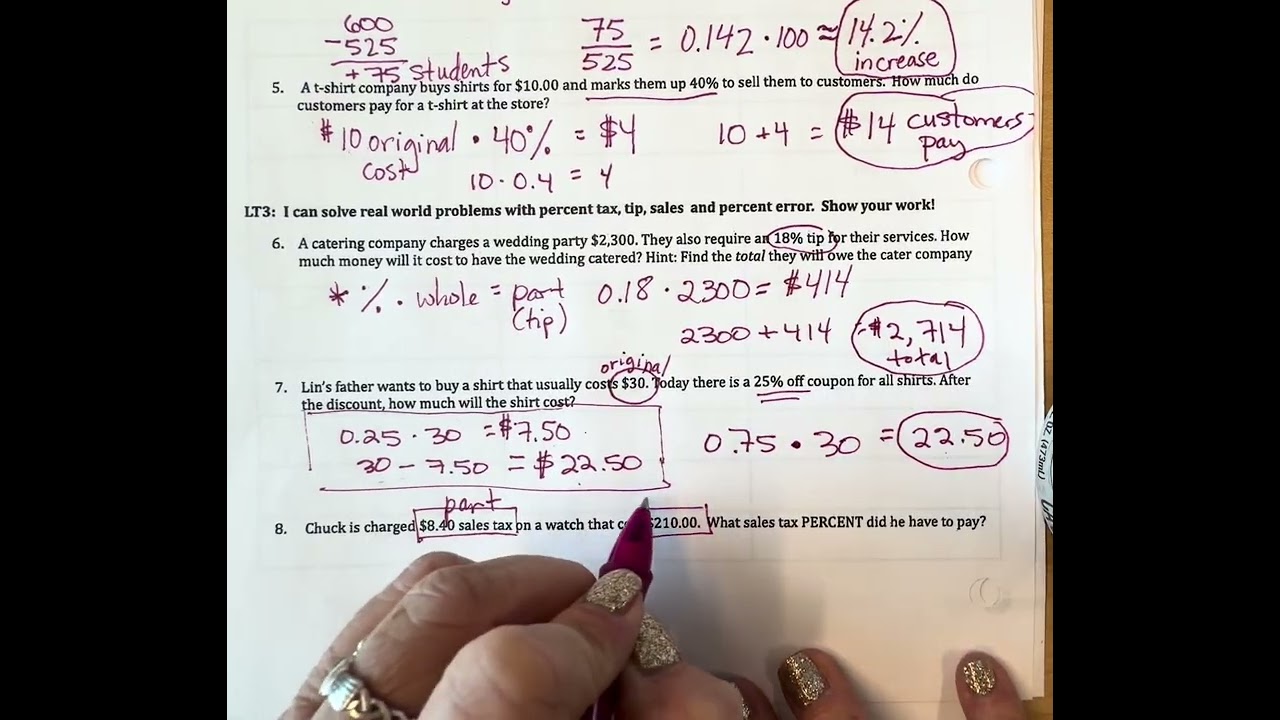 600
-525
+75 students
75/525 = 0.142 · 100 ≈ 14.2% increase
5. A t-shirt company buys shirts for $10.00 and marks them up 40% to sell them to customers. How much do
customers pay for a t-shirt at the store?
$10 original cost · 40% = $4
10 · 0.4 = 4
10 + 4 = $14 customers pay
LT3: I can solve real world problems with percent tax, tip, sales and percent error. Show your work!
6. A catering company charges a wedding party $2,300. They also require an 18% tip for their services. How
much money will it cost to have the wedding catered? Hint: Find the total they will owe the cater company
* % · whole = part (tip)
0.18 · 2300 = $414
2300 + 414 = $2,714 total
original
7. Lin's father wants to buy a shirt that usually costs $30. Today there is a 25% off coupon for all shirts. After
the discount, how much will the shirt cost?
0.25 · 30 = $7.50
30 - 7.50 = $22.50
0.75 · 30 = 22.50
part
8. Chuck is charged $8.40 sales tax on a watch that $210.00. What sales tax PERCENT did he have to pay?
(473mL)